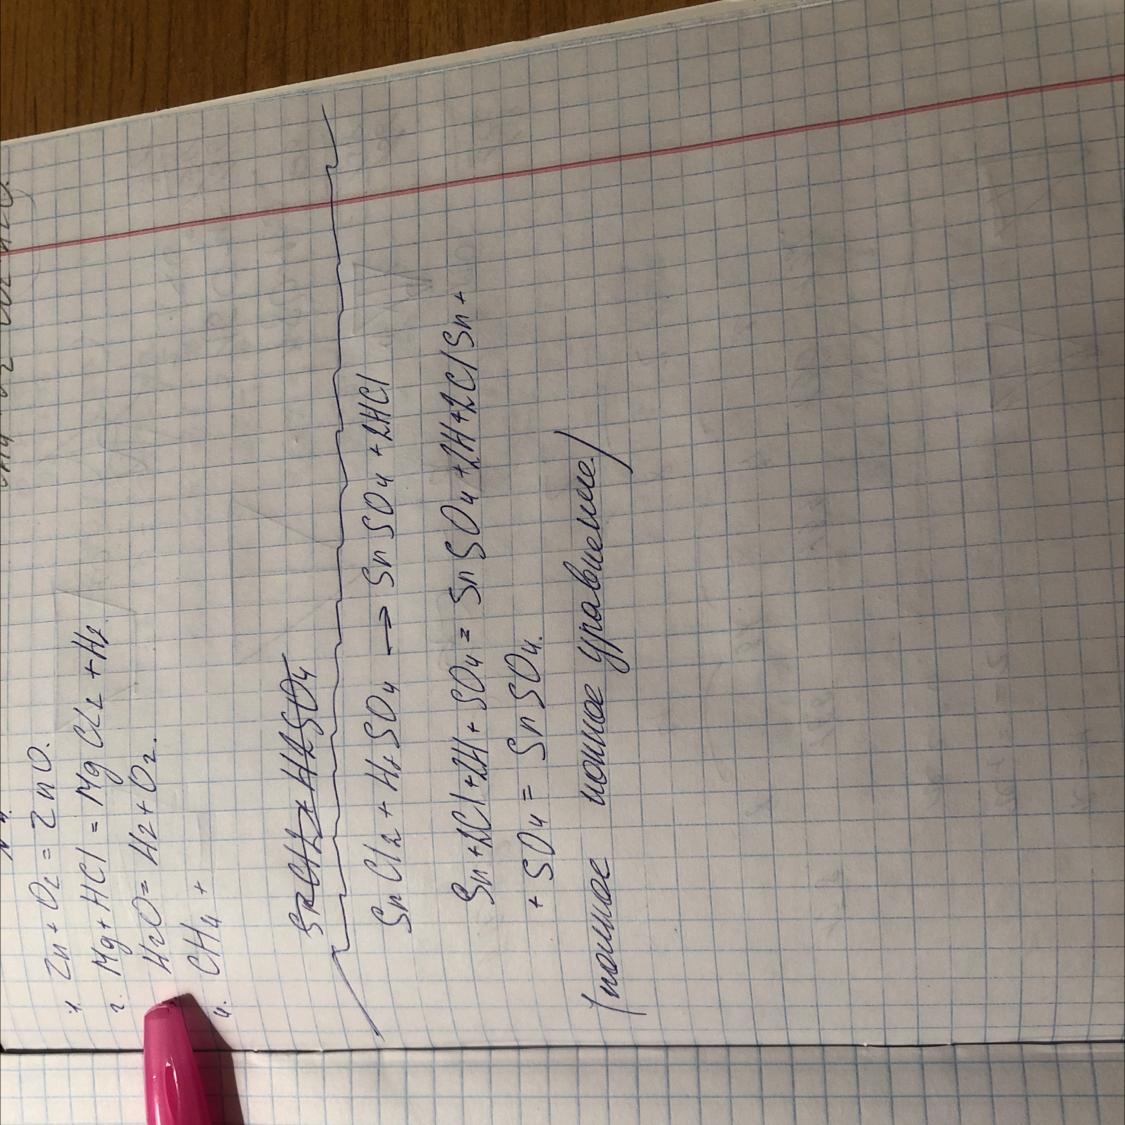 1. Zn + O2 = ZnO.
2. Mg + HCl = MgCl2 + H2
H2O = H2 + O2.
4. CH4 +
SnCl2 + H2SO4
SnCl2 + H2SO4 → SnSO4 + 2HCl
Sn + 2Cl + 2H + SO4 = SnSO4 + 2H + 2Cl Sn +
+ SO4 = SnSO4.
(полное ионное уравнение)